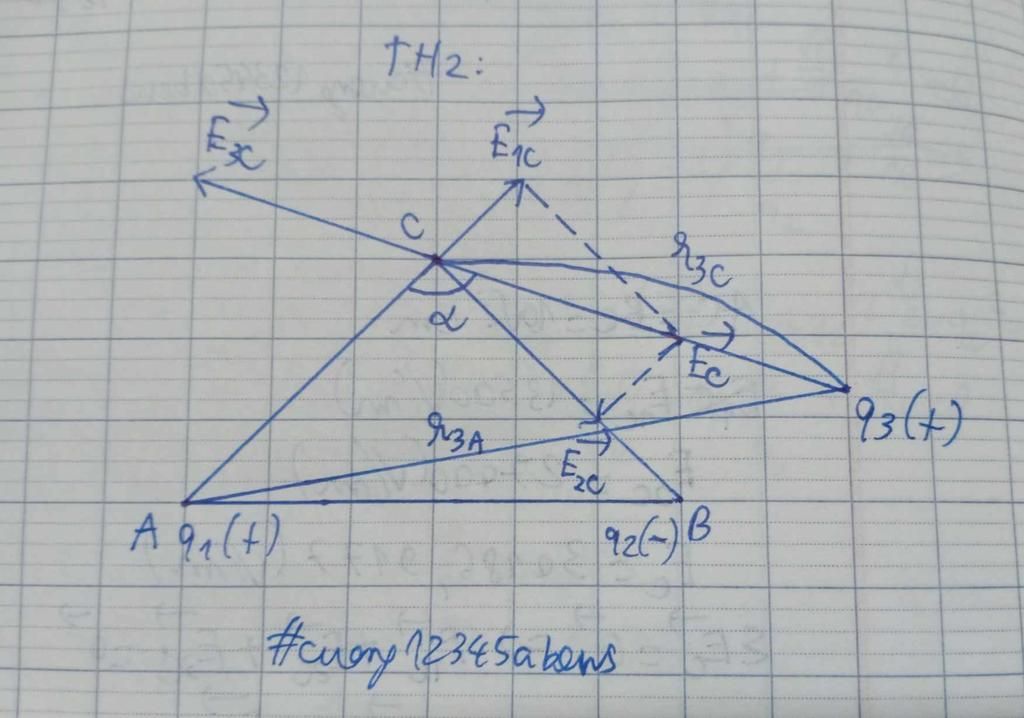 TH2:
E3C
E1C
C
r3C
α
EC
q3(+)
r3A
E2C
A q1(+)
q2(-) B
#cuong12345abcws